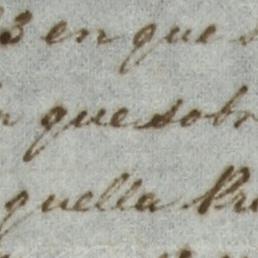 3 en que
que sobr
quella Pr